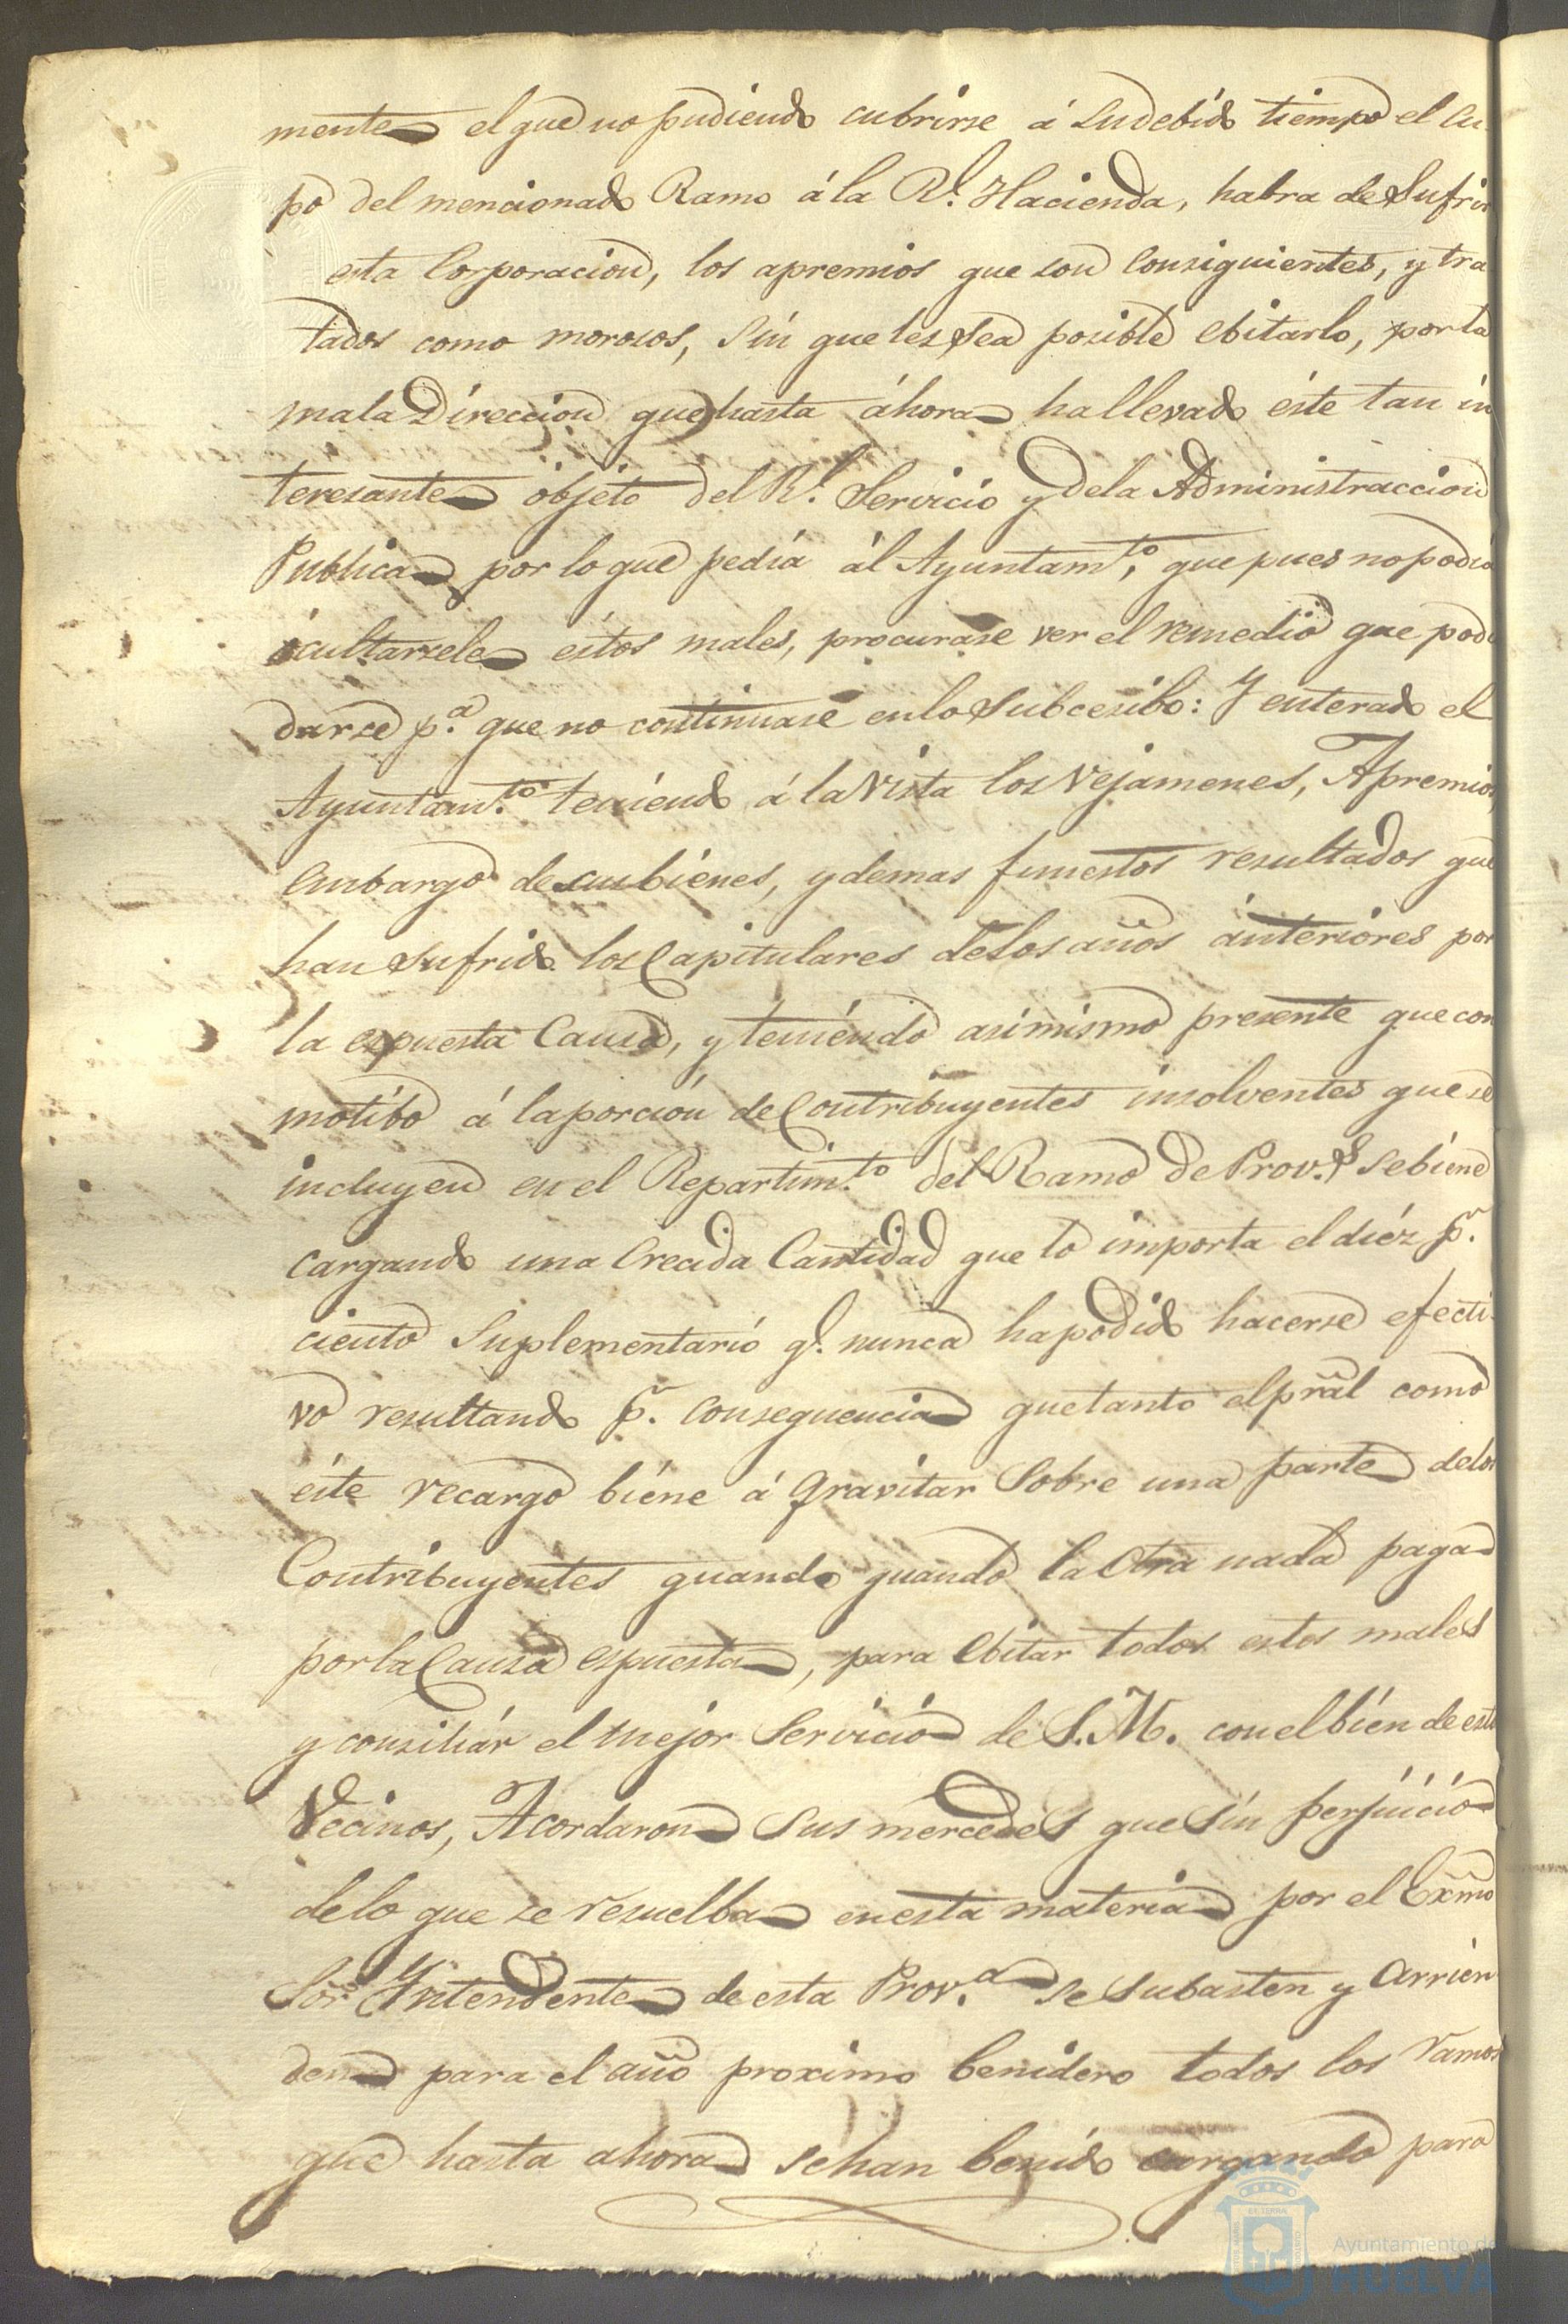 mente el que no pudiendo cubrirse á su debido tiempo el cu-
po del mencionado Ramo á la Rl. Hacienda, habra de Sufrir
esta Corporacion, los apremios que son Consiguientes, y tra
tados como morosos, Sin que les Sea posible ebitarlo, por la
mala Direccion que hasta áhora ha llevado éste tan in
teresante óbjeto del Rl. Servicio y de la Administraccion
Publica por lo que pedía ál Ayuntamto. que pues no podia
ócultarsele éstos males, procurase ver el remedio que podi
darse pa. que no continuase en lo Subcesibo: Y enterado el
Ayuntamto. teniendo á la Vista los Vejamenes, Apremios,
Embargo de sus bienes, y demas funestos resultados que
han Sufrido los Capitulares de los años ánteriores por
la espuesta Causa, y teniendo asimismo presente que con
motibo á la porcion de Contribuyentes insolventes que se
incluyen en el Repartimto. del Ramo de Prov.s se biene
cargando una Crecida Cantidad que lo importa el diéz pr.
ciento Suplementario q. nunca ha podido hacerse efecti-
vo resultando pr. consequencia que tanto el pral como
éste recargo biéne á gravitar Sobre una parte de los
Contribuyentes quando quando la Otra nada paga
por la Causa espuesta, para ebitar todos estos males
y consiliár el mejor Servicio de S.M. con el bién de estos
Vecinos, Acordaron Sus mercedes que Sin perjuicio
de lo que se resuelba en esta materia por el Exmo
Sor. Yntendente de esta Prov.a se Subasten y Arrien
den para el año proximo benidero todos los ramos
que hasta ahora se han benido cargando para
Ayuntamiento de
HUELVA